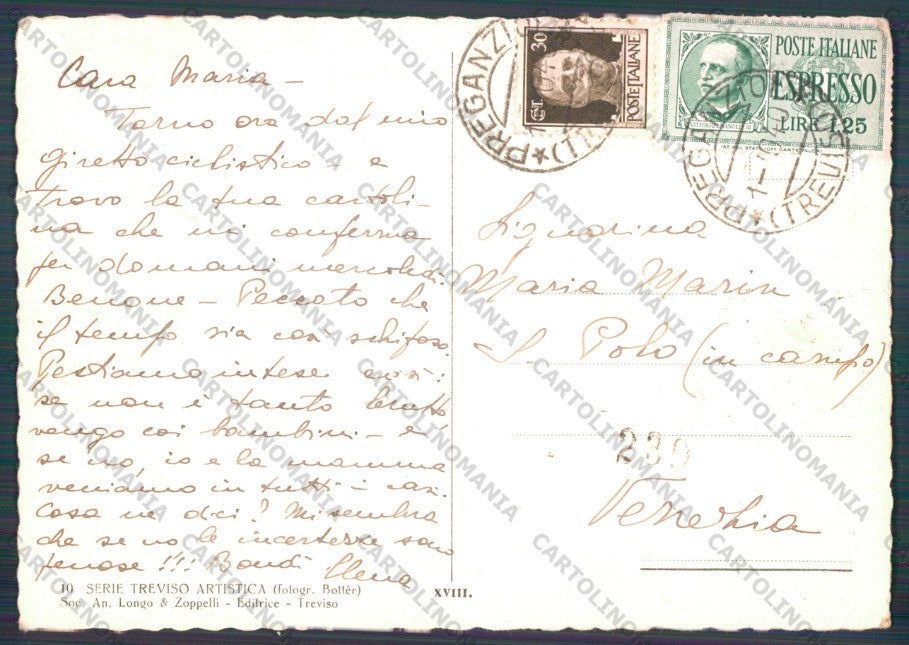 Cara Maria -
Torno ora dal mio
giretto ciclistico e
trovo la tua cartoli-
na che mi conferma
per domani mercoledì.
Benone - Peccato che
il tempo sia così schifoso.
Restiamo intese così:
se non è tanto brutto,
vengo coi bambini - e
se no, io e la mamma
veniamo in tutti i casi.
Cosa ne dici? Mi sembra
che se no le incertezze sono
penose!!! Baci
Elena
10 SERIE TREVISO ARTISTICA (fotogr. Bottèr)
Soc. An. Longo & Zoppelli - Editrice - Treviso
XVIII.
CENT. 30 POSTE ITALIANE
POSTE ITALIANE
ESPRESSO
VITTORIO EMANUELE III
LIRE 1,25
PREGANZIOL
(TREVISO)
PREGANZIOL
(TREVISO)
Signorina
Maria Marin
S. Polo (in campo)
230
Venezia
CARTOLINOMANIA